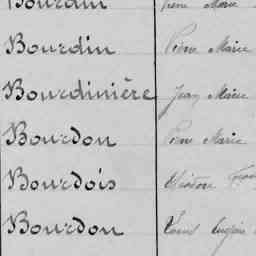 Bourdin Pierre Marie
Bourdin Pierre Marie
Bourdinière Jean Marie
Bourdon Pierre Marie
Bourdois Théodore
Bourdon Louis